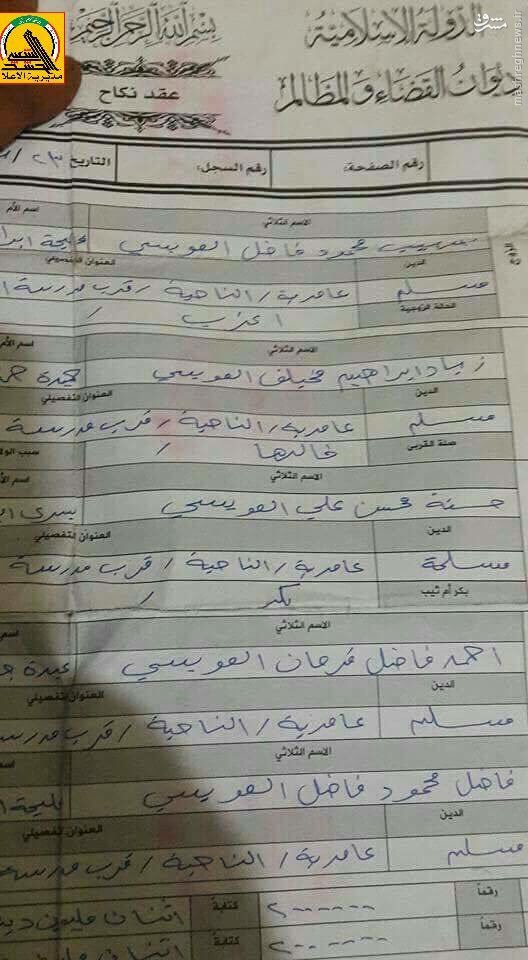 بسم الله الرحمن الرحيم
الدولة الإسلامية
ديوان القضاء والمظالم
عقد نكاح
مديرية الاعلا
مشرق
mashreghnews.ir
رقم الصفحة: رقم السجل: التاريخ ٢٣ /
الاسم الثلاثي اسم الأم
الزوج
محمود فاضل العويسي
الدين العنوان التفصيلي
مسلم عامرية / الناحية / قرب مدرسة
الحالة الزوجية
اعزب /
الاسم الثلاثي اسم الأم
زياد ابراهيم مخيلف العويسي
الدين العنوان التفصيلي
مسلم عامرية / الناحية / قرب مدرسة
صلة القربى خالها / سبب الولا
الاسم الثلاثي اسم الأ
حسنة محسن علي العويسي يسرى
الدين العنوان التفصيلي
مسلمة عامرية / الناحية / قرب مدرسة
بكر أم ثيب بكر /
الاسم الثلاثي اسم
احمد فاضل فرحان العويسي عبدة
الدين العنوان التفصيلي
مسلم عامرية / الناحية / قرب مدرس
الاسم الثلاثي
فاضل محمود فاضل العويسي مليحة
الدين العنوان التفصيلي
مسلم عامرية / الناحية / قرب مدرسة
رقماً ٢٠٠٠٠٠٠ كتابة اثنان مليون دي
رقماً ٢٠٠٠٠٠٠ كتابة اثنان مليون